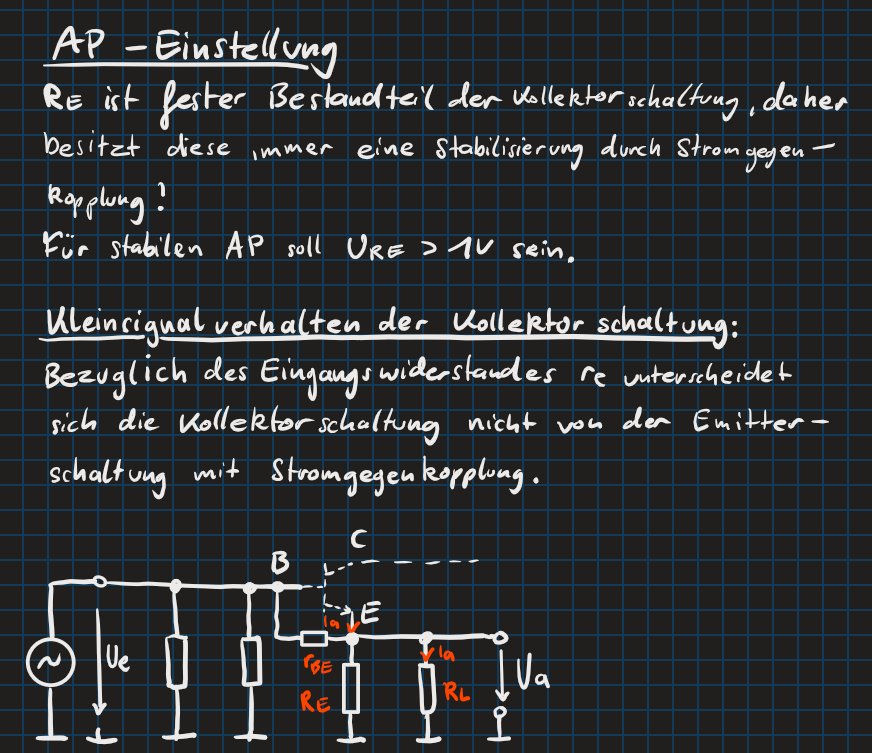 AP - Einstellung
RE ist fester Bestandteil der Kollektorschaltung, daher
besitzt diese immer eine Stabilisierung durch Stromgegen-
kopplung!
Für stabilen AP soll URE > 1V sein.
Kleinsignalverhalten der Kollektorschaltung:
Bezuglich des Eingangswiderstandes re unterscheidet
sich die Kollektorschaltung nicht von der Emitter-
schaltung mit Stromgegenkopplung.
C
B
E
ia
Ue
rBE
ia
RE
RL
Ua